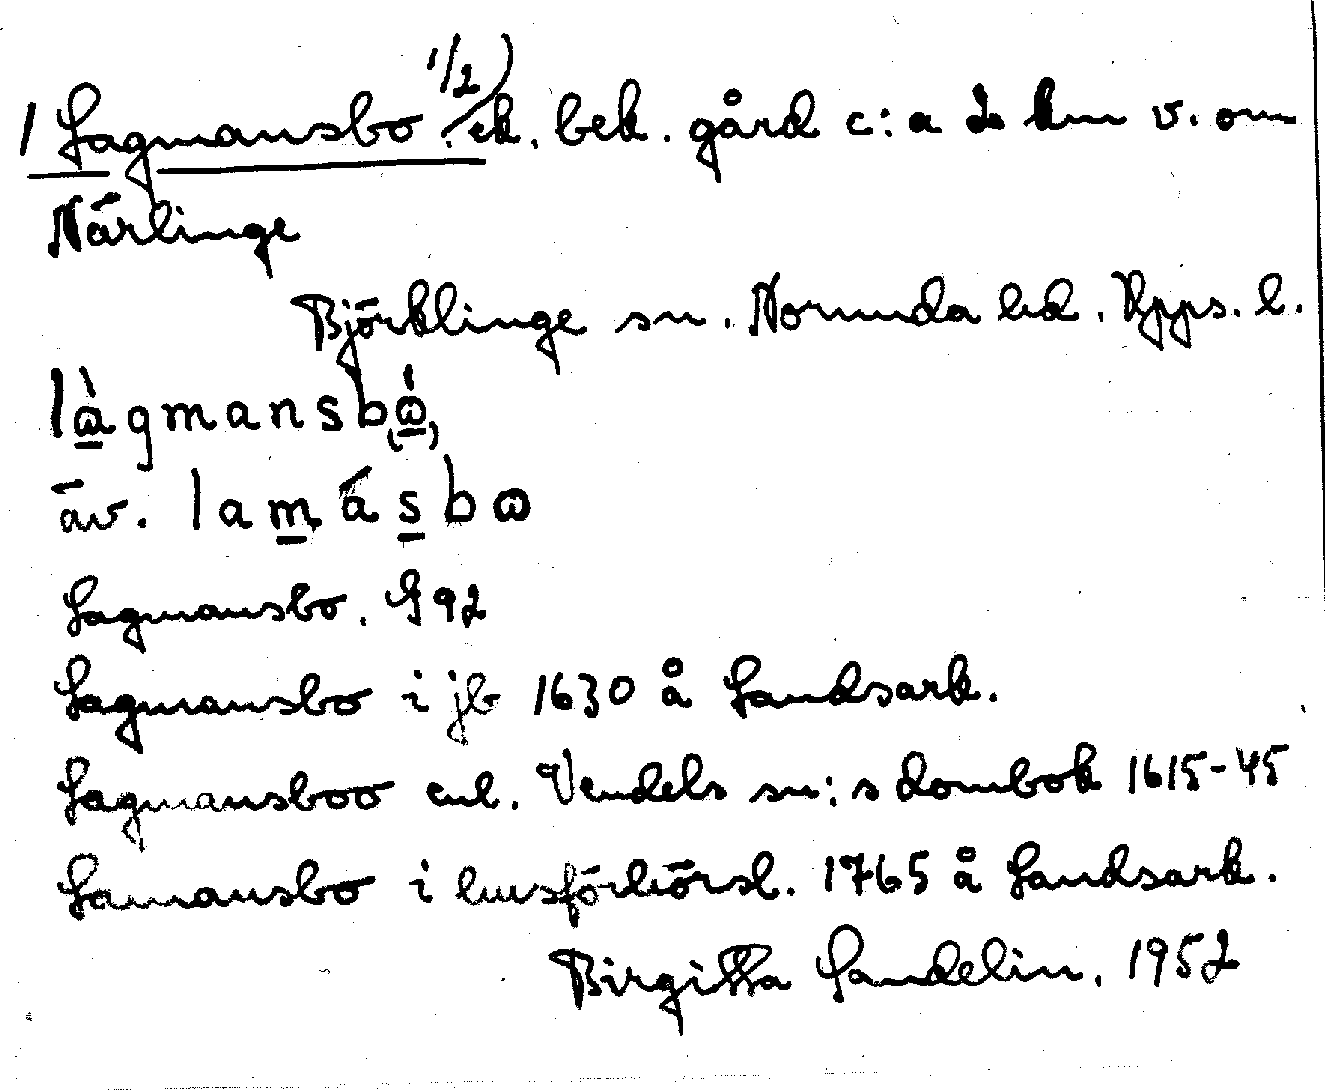 1 Lagmansbo 1/2) ek. beb. gård c:a 2 km v. om
Närlinge
Björklinge sn. Norunda hd. Upps. l.
làgmansbώ,
äv. lamásbω
Lagmansbo. G 92
Lagmansbo i jb 1630 å Landsark.
Lagmansboo enl. Vendels sn:s dombok 1615-45
Lamansbo i husförhörsl. 1765 å Landsark.
Birgitta Sandelin. 1952